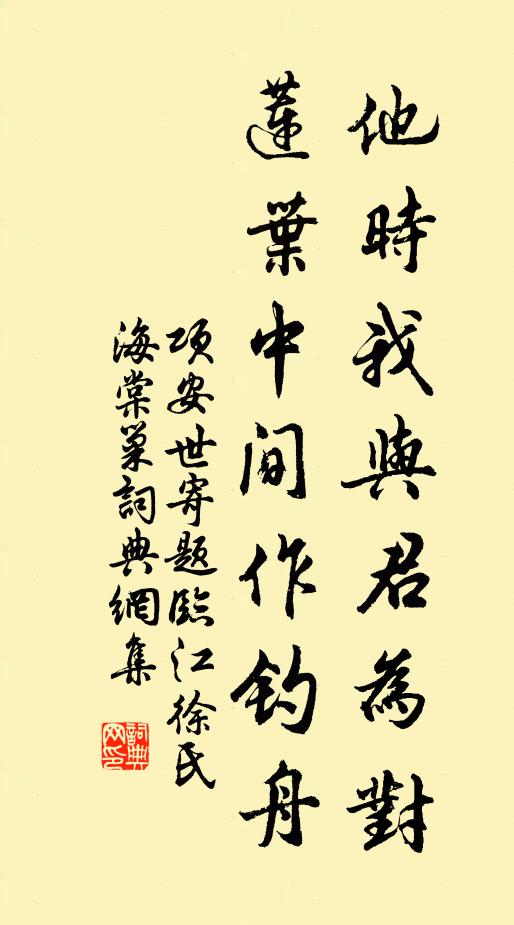 他時我與君為對
蓮葉中間作釣舟
项安世寄題臨江徐氏
海棠巢詞典網集
詞典網印